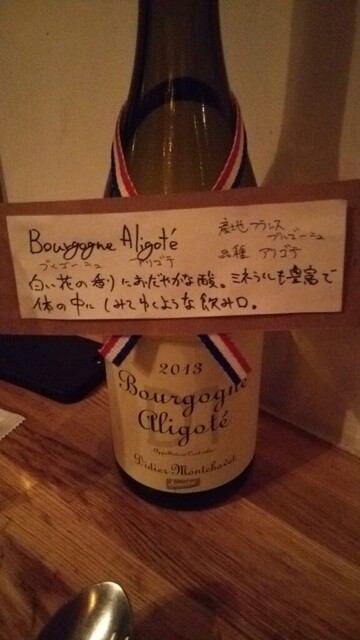 Bourgogne Aligoté
ブルゴーニュ アリゴテ
産地 フランス
ブルゴーニュ
品種 アリゴテ
白い花の香りにおだやかな酸。ミネラルも豊富で
体の中にしみてゆくような飲み口。
2013
Bourgogne
Aligoté
Appellation Contrôlée
Didier Montchovet
demeter